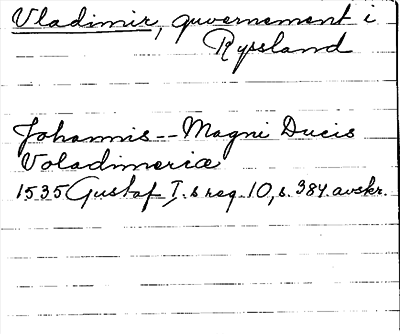 Vladimir, guvernement i
Ryssland
Johannis -- Magni Ducis
Voladimeriæ
1535 Gustaf I.s reg. 10, s. 384. avskr.